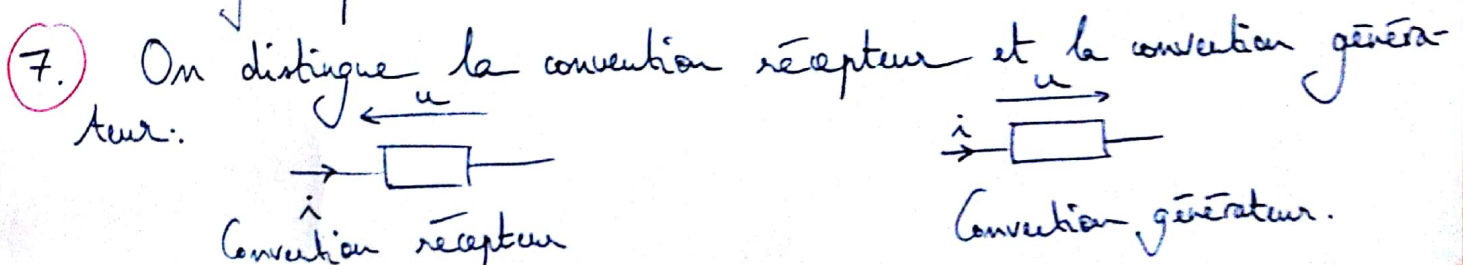 7. On distingue la convention récepteur et la convention généra-
teur:
u
u
i
i
Convention récepteur
Convention générateur.